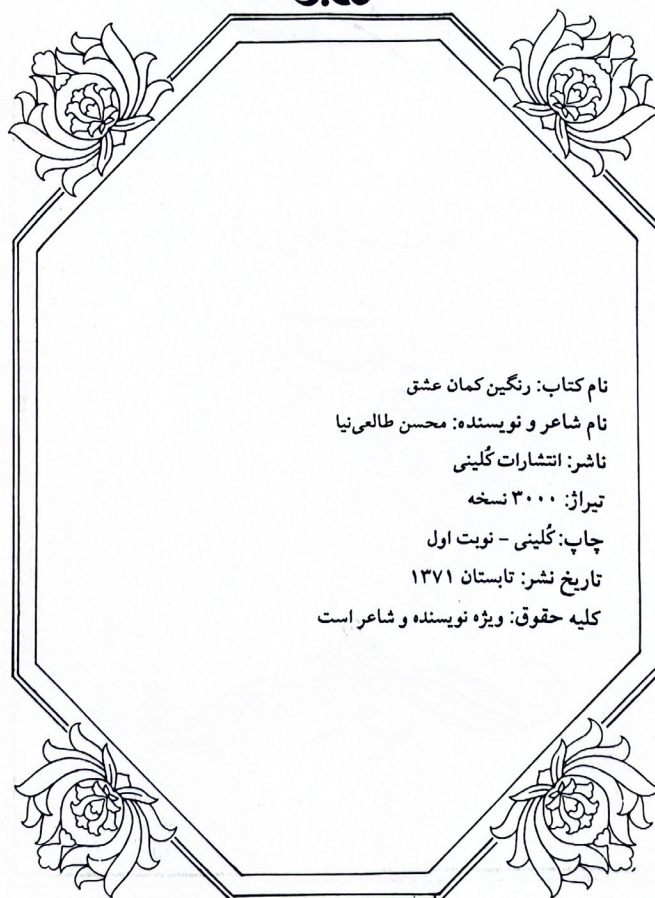 نام کتاب: رنگین کمان عشق
نام شاعر و نویسنده: محسن طالعی‌نیا
ناشر: انتشارات کُلینی
تیراژ: ۳۰۰۰ نسخه
چاپ: کُلینی – نوبت اول
تاریخ نشر: تابستان ۱۳۷۱
کلیه حقوق: ویژه نویسنده و شاعر است